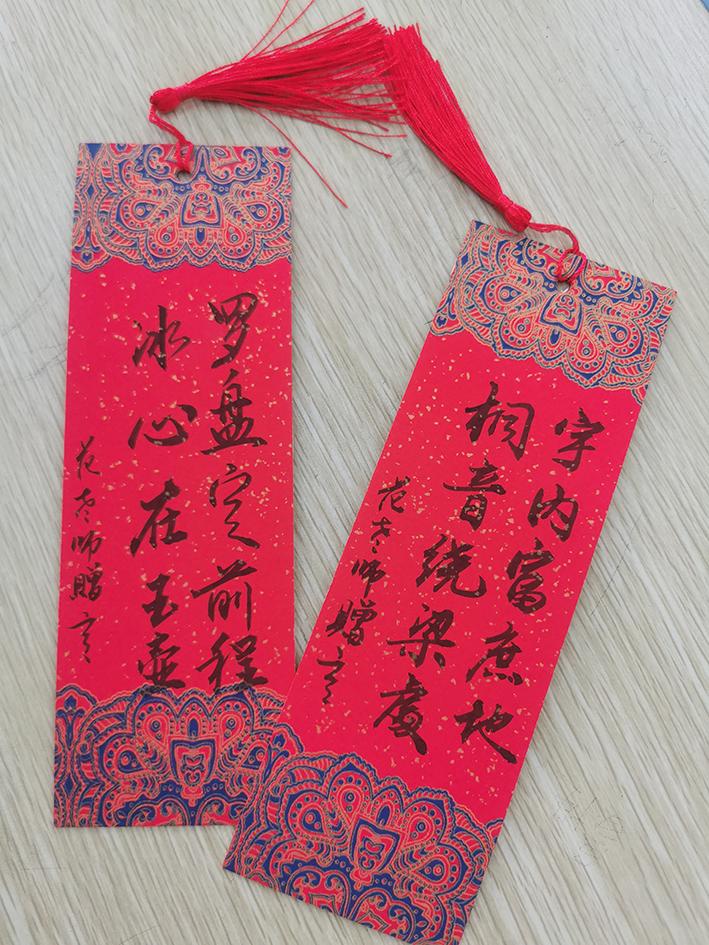 罗盘定前程
冰心在玉壶
花老师赠言
宇内富庶地
桐音绕梁处
花老师赠言